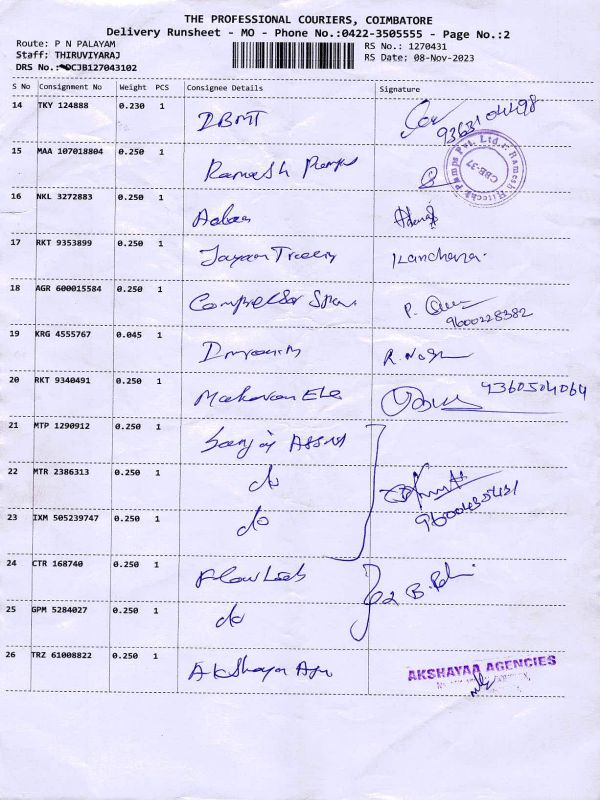 THE PROFESSIONAL COURIERS, COIMBATORE
Delivery Runsheet - MO - Phone No.:0422-3505555 - Page No.:2
Route: P N PALAYAM
RS No.: 1270431
Staff: THIRUVIYARAJ
RS Date: 08-Nov-2023
DRS No.: DCJB127043102
S No Consignment No Weight PCS Consignee Details Signature
14 TKY 124888 0.230 1 IBMT 9363104498
15 MAA 107018804 0.250 1 Ramesh Pumps
Ramesh Hitech Pumps Pvt. Ltd. CBE-37
16 NKL 3272883 0.250 1
17 RKT 9353899 0.250 1 Kanchana.
18 AGR 600015584 0.250 1 Compressor P.
9600228382
19 KRG 4555767 0.045 1 R.
20 RKT 9340491 0.250 1 9360504064
21 MTP 1290912 0.250 1 Sanjay Assn
22 MTR 2386313 0.250 1 do
23 IXM 505239747 0.250 1 do 9600435431
24 CTR 168740 0.250 1 B.
25 GPM 5284027 0.250 1 do
26 TRZ 61008822 0.250 1 Akshaya Agn AKSHAYAA AGENCIES